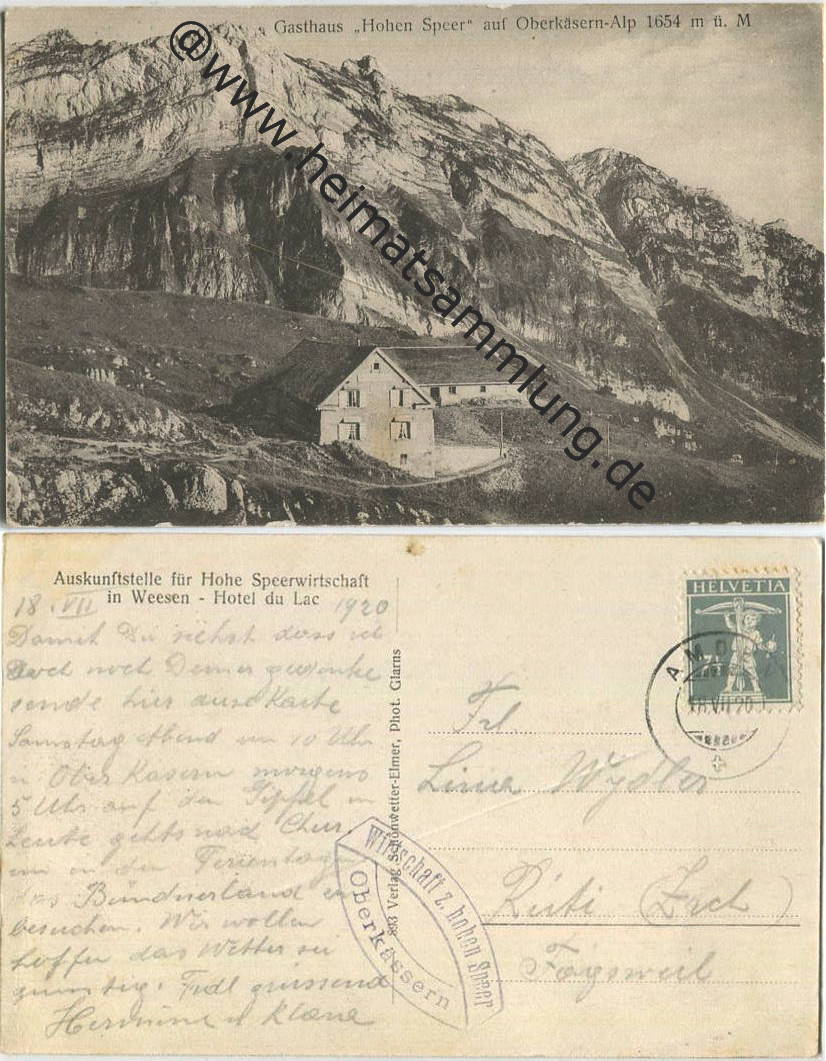 Gasthaus „Hohen Speer“ auf Oberkäsern-Alp 1654 m ü. M
@www.heimatsammlung.de
Auskunftstelle für Hohe Speerwirtschaft
in Weesen - Hotel du Lac
18. VII 1920
Damit Du siehst dass ich
doch noch Deiner gedenke
sende hier diese Karte
Samstag Abend um 10 Uhr
n Ober Käsern morgens
5 Uhr auf den Gipfel
heute gehts nach Chur,
um in den Ferientagen
das Bündnerland
besuchen. Wir wollen
hoffen das Wetter sei
günstig. Frdl grüssend
Hermine u Klara
893 Verlag Schönwetter-Elmer, Phot. Glarus
Wirtschaft z. hohen Speer
Oberkässern
HELVETIA
18.VII.20
Frl.
Lina Wydler
Rüti (Zrch)
Fägsweil